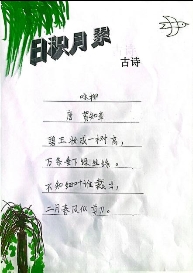 日积月累
古诗
咏柳
唐 贺知章
碧玉妆成一树高，
万条垂下绿丝绦。
不知细叶谁裁出，
二月春风似剪刀。